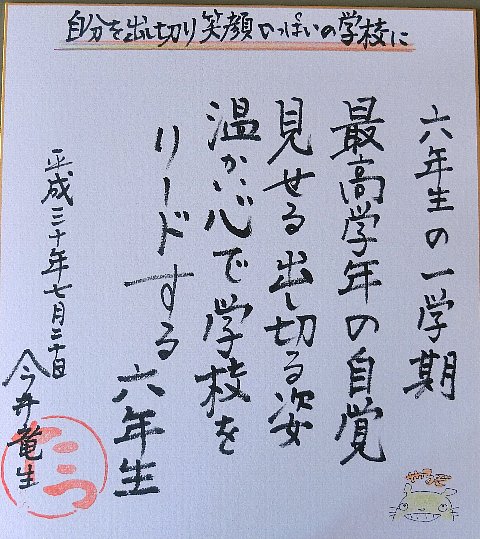 自分を出し切り笑顔いっぱいの学校に
六年生の一学期
最高学年の自覚
見せる出し切る姿
温かい心で学校を
リードする六年生
平成三十年七月二十日
今井竜生